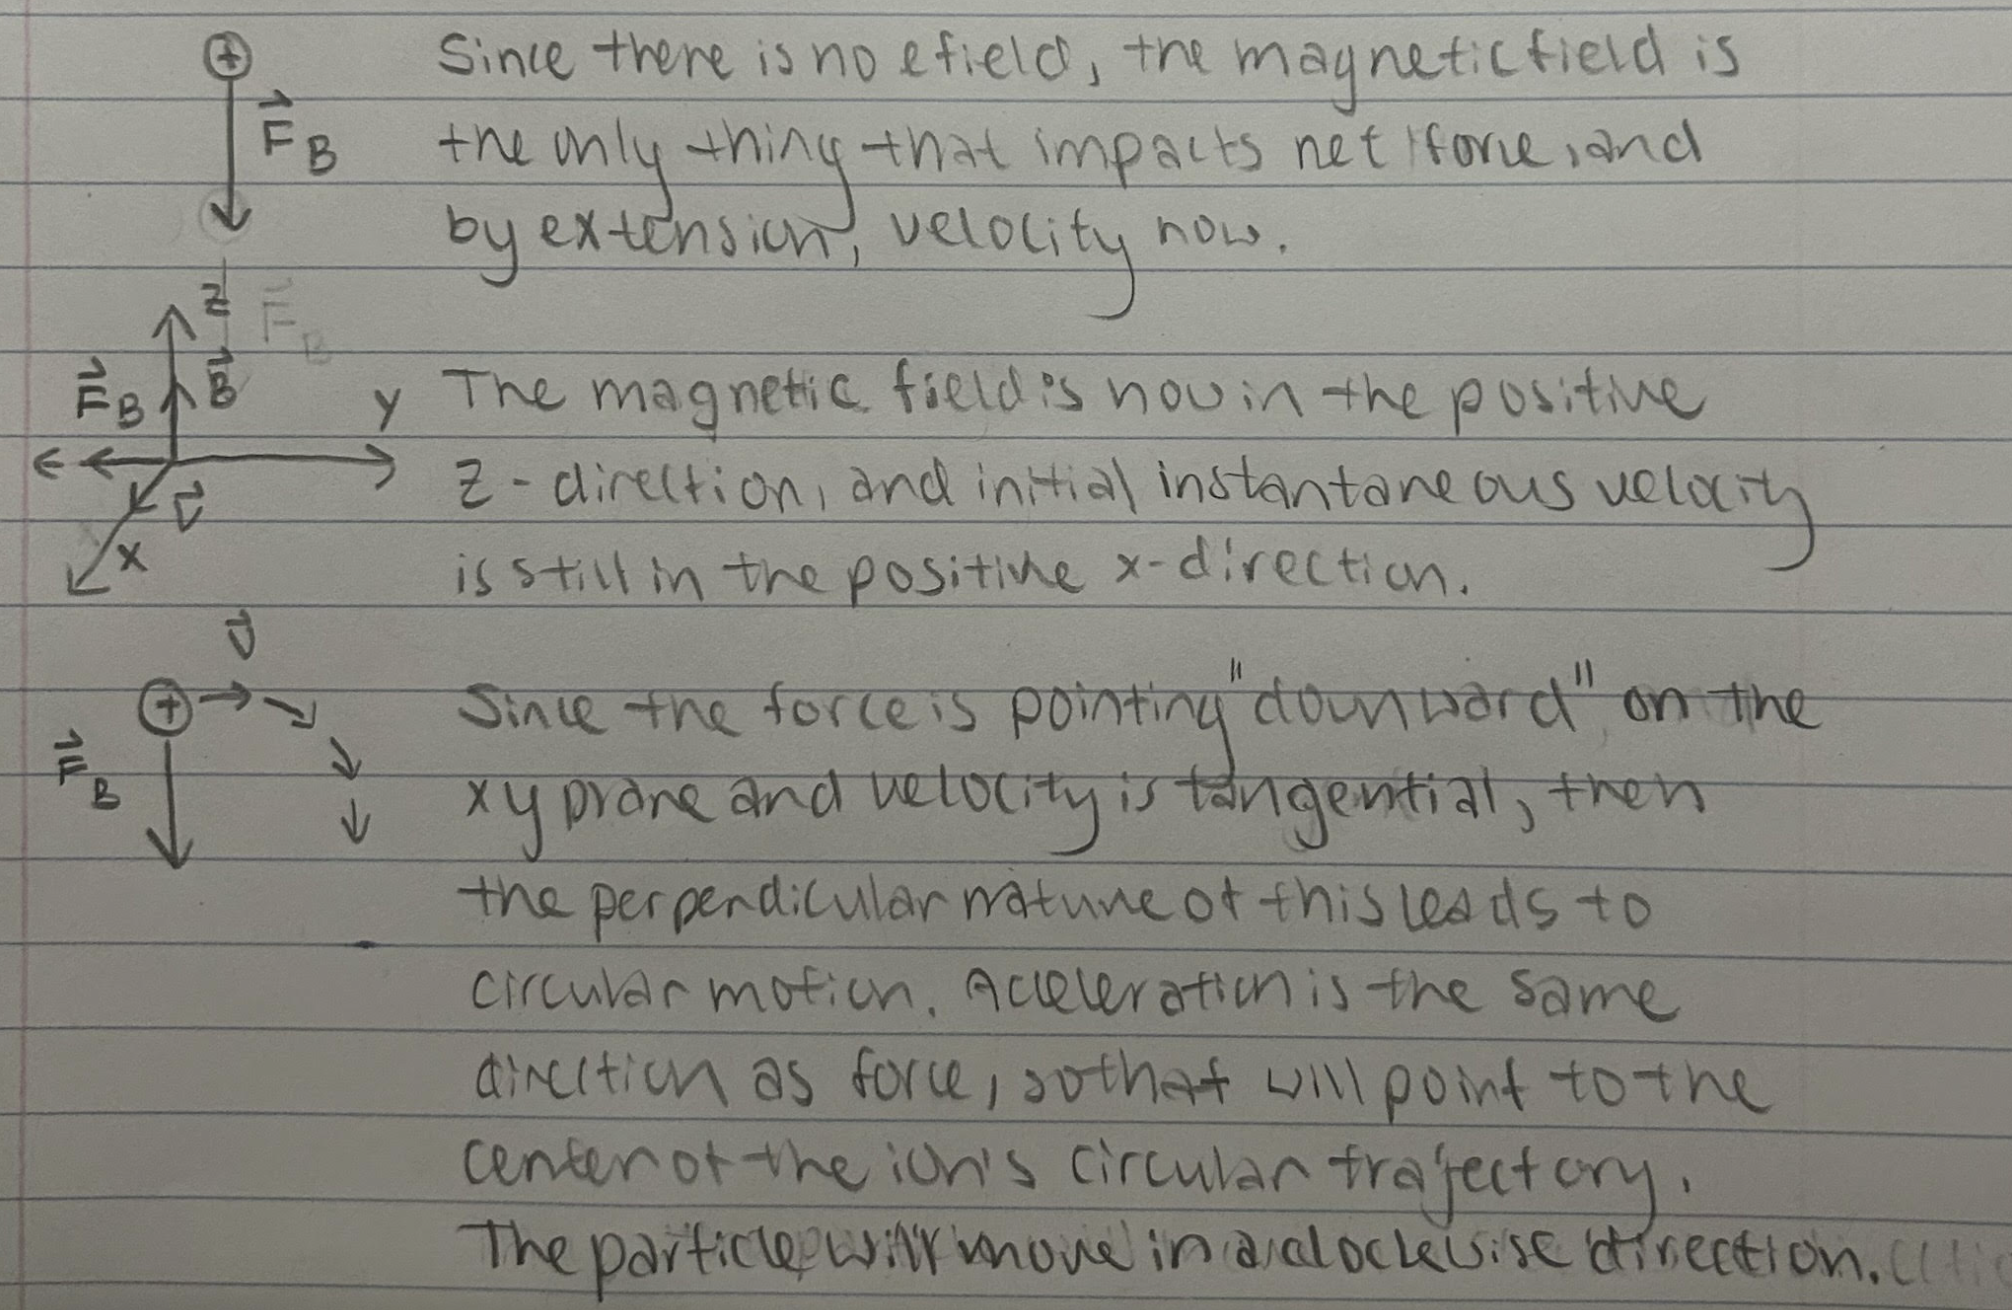 ⊕ Since there is no efield, the magnetic field is
F⃗B the only thing that impacts net force, and
by extension, velocity now.
z F B
F⃗B B⃗ y The magnetic field is now in the positive
z-direction, and initial instantaneous velocity
v⃗
x is still in the positive x-direction.
v⃗
⊕ Since the force is pointing "downward" on the
F⃗B xy plane and velocity is tangential, then
the perpendicular nature of this leads to
circular motion. Acceleration is the same
direction as force, so that will point to the
center of the ion's circular trajectory.
The particle will move in a clockwise direction.